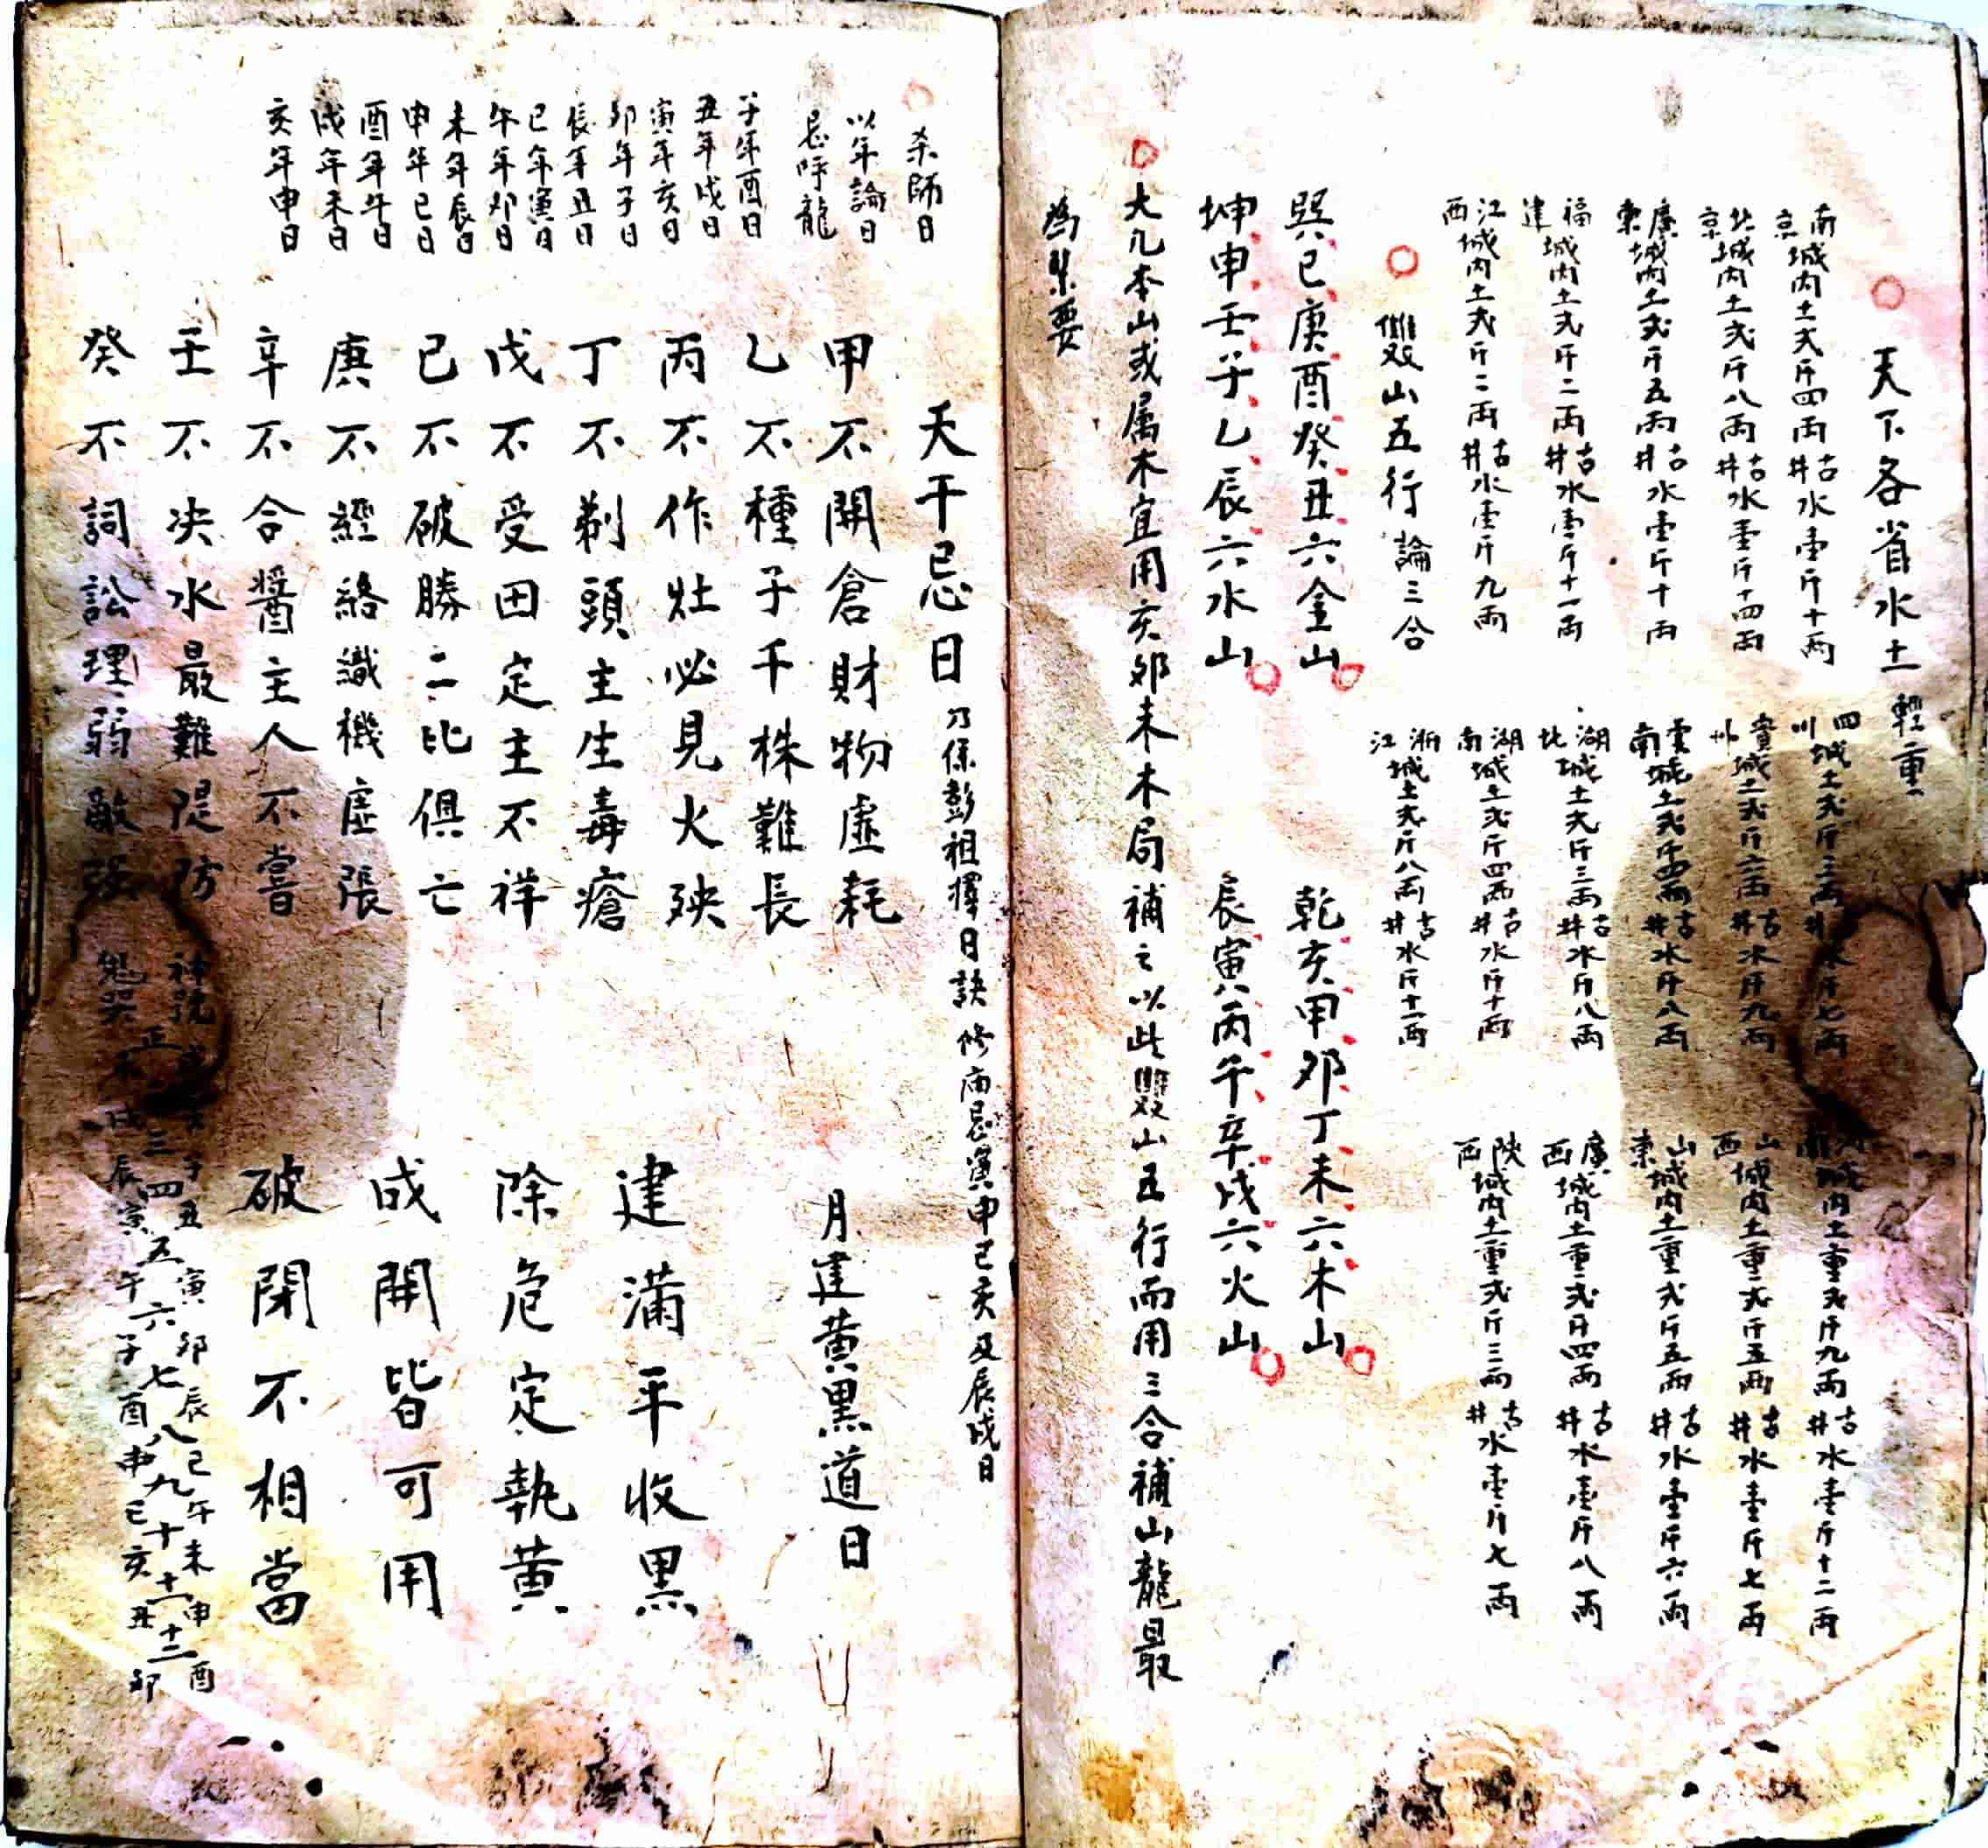 天下各省水土輕重
南京城内土弍斤四兩古井水壹斤十兩
北京城内土弍斤八兩古井水壹斤十四兩
廣東城内土弍斤五兩古井水壹斤十兩
福建城内土弍斤二兩古井水壹斤十一兩
江西城内土弍斤二兩古井水壹斤九兩
四川城土弍斤三兩井水斤七兩
貴州城土弍斤六兩古井水斤九兩
雲南城土弍斤四兩古井水斤八兩
湖北城土弍斤三兩古井水斤八兩
湖南城土弍斤四兩古井水斤十兩
浙江城土弍斤八兩古井水斤十一兩
南城内土重弍斤九兩古井水壹斤十二兩
山西城内土重弍斤五兩古井水壹斤七兩
山東城内土重弍斤五兩古井水壹斤六兩
廣西城内土重弍斤四兩古井水壹斤八兩
陝西城内土重弍斤三兩古井水壹斤七兩
雙山五行論三合
巽巳庚酉癸丑六金山
乾亥甲卯丁未六木山
坤申壬子乙辰六水山
辰寅丙午辛戌六火山
大凡本山或属木宜用亥卯未木局補之以此雙山五行而用三合補山龍最
為緊要
杀師日
以年論日
忌呼龍
子年酉日
丑年戌日
寅年亥日
卯年子日
辰年丑日
巳年寅日
午年卯日
未年辰日
申年巳日
酉年午日
戌年未日
亥年申日
天干忌日
乃係彭祖擇日訣 修廟忌寅申巳亥及辰戌日
甲不開倉財物虛耗
乙不種子千株難長
丙不作灶必見火殃
丁不剃頭主生毒瘡
戊不受田定主不祥
己不破勝二比俱亡
庚不經絡識機虛張
辛不合醬主人不嘗
壬不决水最難隄防
癸不詞訟理弱敵强
月建黄黑道日
建滿平收黑
除危定執黄
成開皆可用
破閉不相當
神號 子丑寅卯辰巳午未申酉
正 三四五六七八九十十一十二
鬼哭未戌辰寅午子酉申巳亥丑卯